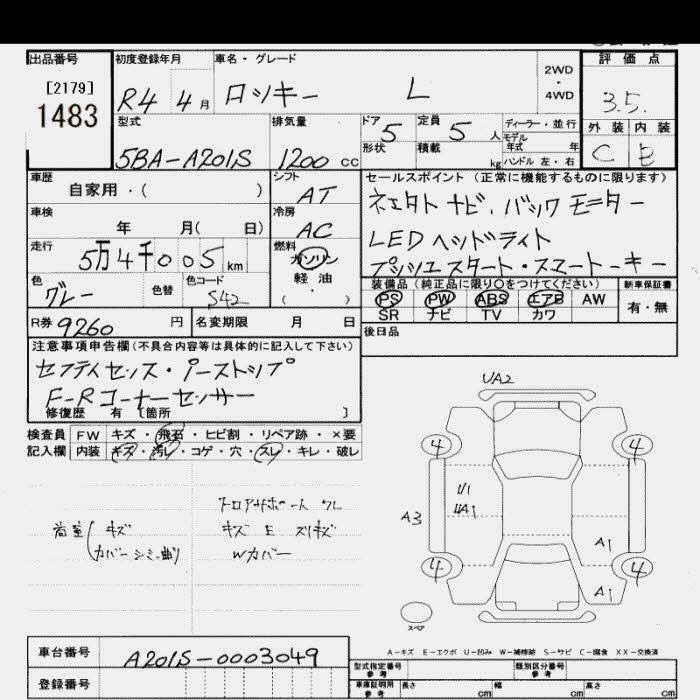 出品番号
[2179]
1483
初度登録年月
R4 4月
車名・グレード
ロッキー L
2WD
・
4WD
評価点
3.5.
外装 内装
C B
型式
5BA-A201S
排気量
1200 cc
ドア 5
形状
定員 5 人
積載 kg
ディーラー・並行
モデル
年式 年
ハンドル 左・右
車歴
自家用・( )
シフト
AT
車検
年 月( 日)
冷房
AC
走行
5万4千005 km
燃料
ガソリン
・
軽油
・
( )
色
グレー
色替
色コード
S42
セールスポイント(正常に機能するものに限ります)
ナビ、バックモニター
LEDヘッドライト
プッシュスタート・スマートキー
装備品(純正品に限り○をつけてください)
PS PW ABS エアB AW
SR ナビ TV カワ
新車保証書
有・無
R券 9260 円
名変期限 月 日
後日品
注意事項申告欄(不具合内容等は具体的に記入して下さい)
F-Rコーナーセンサー
修復歴 有 〔箇所 〕
検査員
記入欄
FW キズ・飛石・ヒビ割・リペア跡・×要
内装 キズ・汚レ・コゲ・穴・スレ・キレ・破レ
キズ
カバーシミ・曲り
キズ E スリキズ
Wカバー
UA2
4 4
A3
A1
4 4
A1
スペア
A-キズ E-エクボ U-凹み W-補修跡 S-サビ C-腐食 XX-交換済
車台番号
A201S-0003049
登録番号
型式指定番号
参考
類別区分番号
参考
車庫証明用
参考
長さ cm 幅 cm 高さ cm